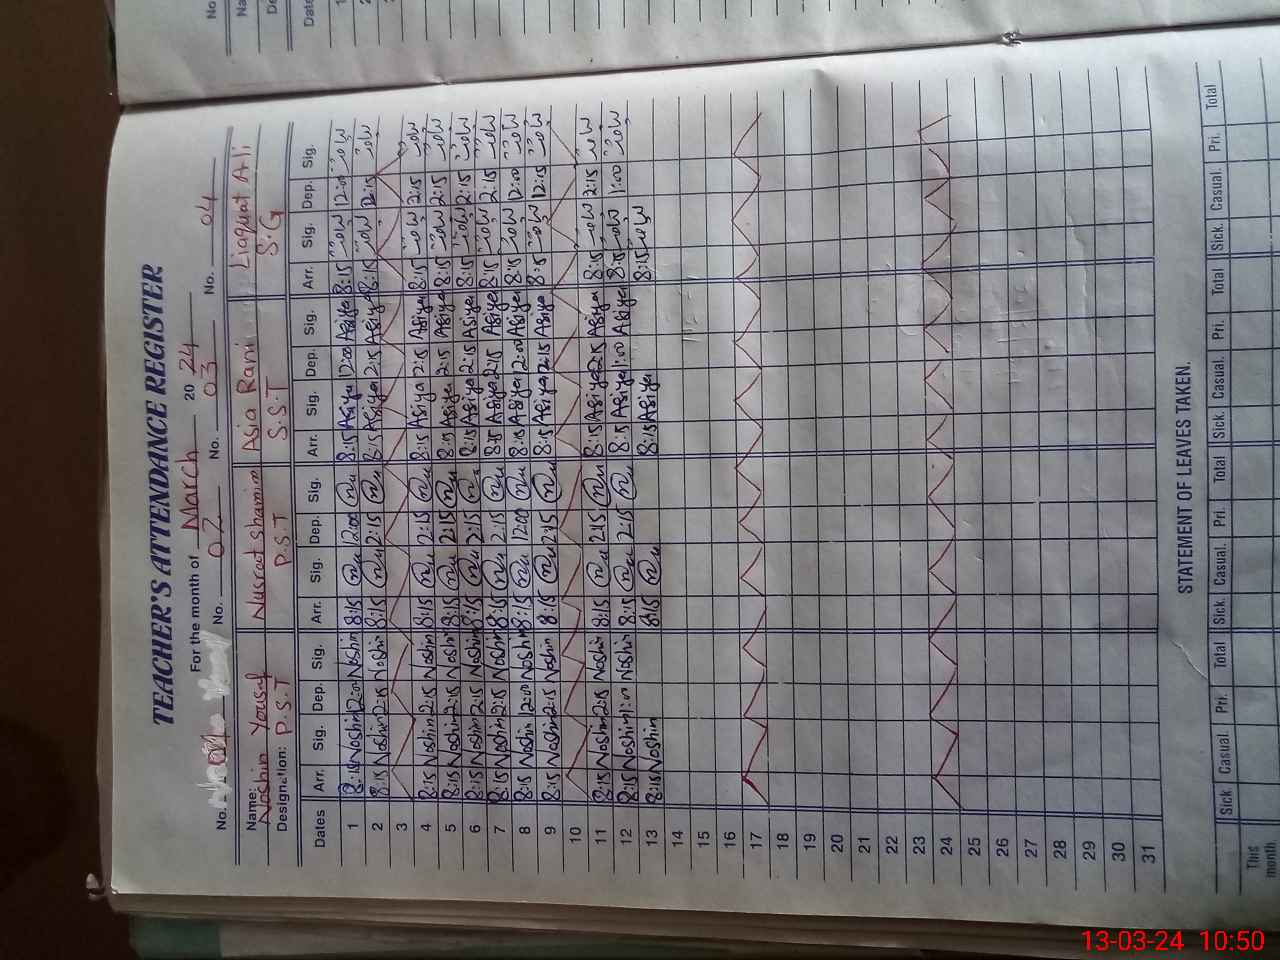 TEACHER'S ATTENDANCE REGISTER
For the month of March 2024
No. 01 No. 02 No. 03 No. 04
Name: Noshin Yousaf Nusraat Shamim Asia Rani Liaquat Ali
Designation: P.S.T P.S.T S.S.T S.G
Dates Arr. Sig. Dep. Sig. Arr. Sig. Dep. Sig. Arr. Sig. Dep. Sig. Arr. Sig. Dep. Sig.
1 8:15 Noshin 12:00 Noshin 8:15 12:00 8:15 Asiya 12:00 Asiya 8:15 12:00
2 8:15 Noshin 2:15 Noshin 8:15 2:15 8:15 Asiya 2:15 Asiya 8:15 2:15
3
4 8:15 Noshin 2:15 Noshin 8:15 2:15 8:15 Asiya 2:15 Asiya 8:15 2:15
5 8:15 Noshin 2:15 Noshin 8:15 2:15 8:15 Asiya 2:15 Asiya 8:15 2:15
6 8:15 Noshin 2:15 Noshin 8:15 2:15 8:15 Asiya 2:15 Asiya 8:15 2:15
7 8:15 Noshin 2:15 Noshin 8:15 2:15 8:15 Asiya 2:15 Asiya 8:15 2:15
8 8:15 Noshin 12:00 Noshin 8:15 12:00 8:15 Asiya 12:00 Asiya 8:15 12:00
9 8:15 Noshin 2:15 Noshin 8:15 2:15 8:15 Asiya 2:15 Asiya 8:15 12:15
10
11 8:15 Noshin 2:15 Noshin 8:15 2:15 8:15 Asiya 2:15 Asiya 8:15 2:15
12 8:15 Noshin 1:00 Noshin 8:15 2:15 8:15 Asiya 1:00 Asiya 8:15 1:00
13 8:15 Noshin 8:15 8:15 Asiya 8:15
14
15
16
17
18
19
20
21
22
23
24
25
26
27
28
29
30
31
STATEMENT OF LEAVES TAKEN.
Sick. Casual. Pri. Total Sick. Casual. Pri. Total Sick. Casual. Pri. Total Sick. Casual. Pri. Total
This month
13-03-24 10:50